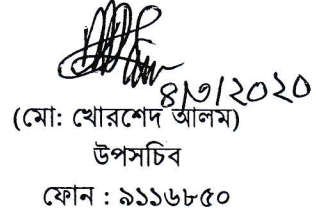 ৪/৩/২০২০
(মো: খোরশেদ আলম)
উপসচিব
ফোন : ৯১১৬৮৫০